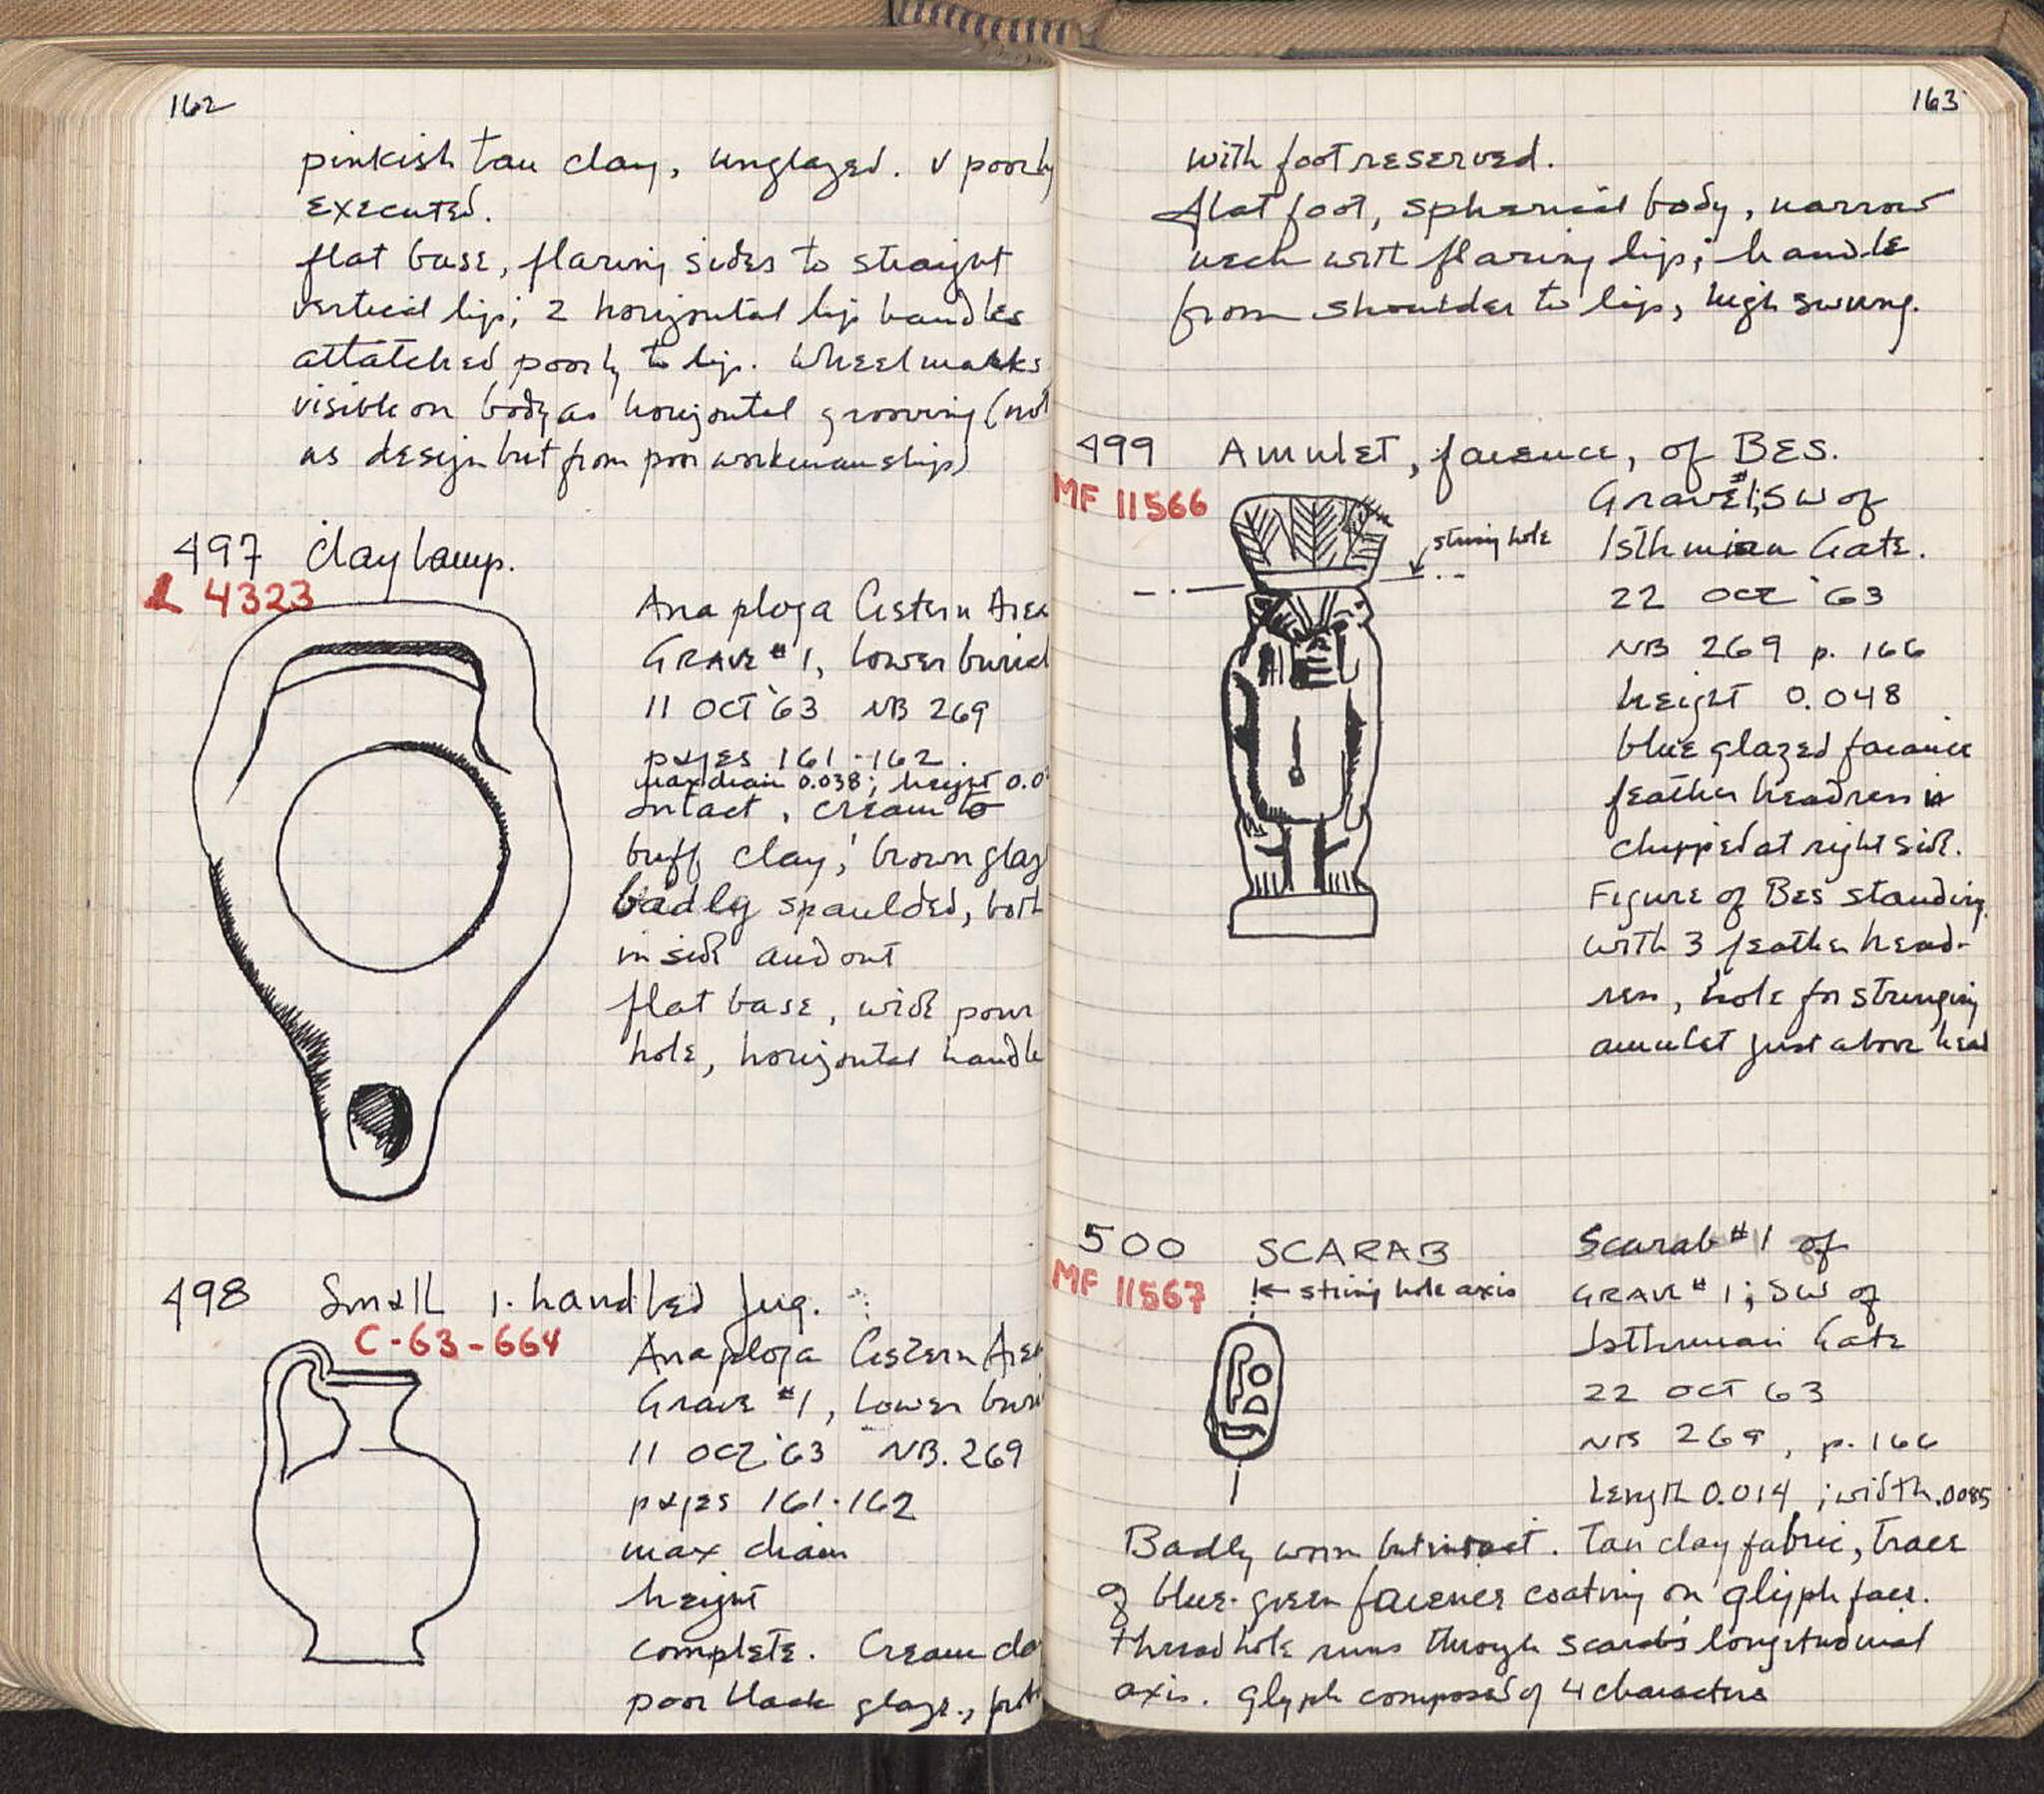 162
pinkish tan clay, unglazed. v poorly
executed.
flat base, flaring sides to straight
vertical lip; 2 horizontal lip handles
attatched poorly to lip. Wheel marks
visible on body as horizontal grooving (not
as design but from poor workmanship)
497 Clay lamp.
L 4323
Anaploga Cistern Area
Grave #1, lower burial
11 OCT '63 NB 269
pages 161-162.
max diam 0.038; height 0.0
intact, cream to
buff clay; brown glaz
badly spaulded, both
inside and out
flat base, wide pour
hole, horizontal handle
498 Small 1-handled jug.
C-63-664
Anaploga Cistern Area
Grave #1, lower buri
11 OCT '63 NB. 269
pages 161-162
max diam
height
complete. Cream cla
poor black glaze.,
163
with foot reserved.
flat foot, spherical body, narrow
neck with flaring lip; handle
from shoulder to lip, high swung.
499 Amulet, faience, of BES.
MF 11566
string hole
Grave #1; SW of
Isthmian Gate.
22 OCT '63
NB 269 p. 166
height 0.048
blue glazed faiance
feather headress is
chipped at right side.
Figure of Bes standing
with 3 feather head-
ress, hole for stringing
amulet just above head
500 SCARAB
MF 11567
string hole axis
Scarab #1 of
GRAVE #1; SW of
Isthmian Gate
22 OCT 63
NB 269, p. 166
Length 0.014; width .0085
Badly worn but intact. Tan clay fabric, trace
of blue-green faience coating on glyph face.
Thread hole runs through scarab's longitudinal
axis. glyph composed of 4 characters